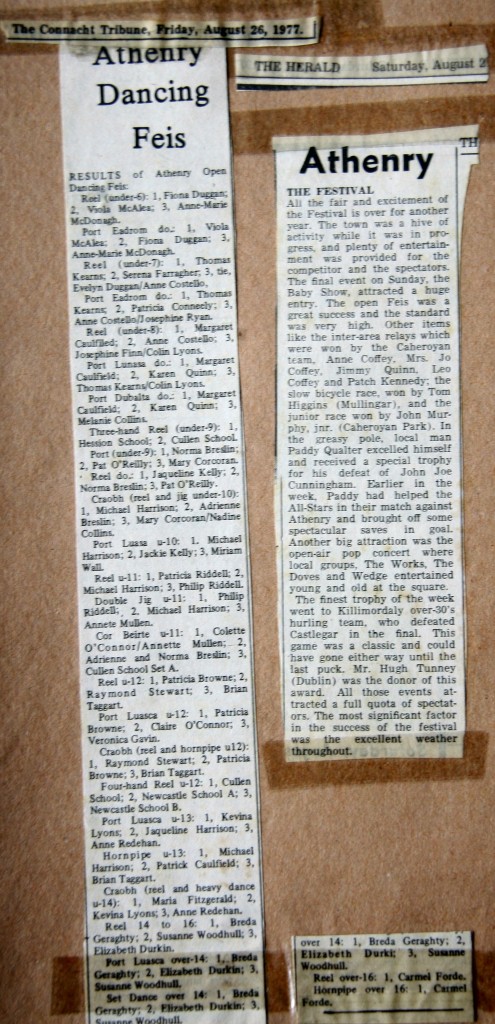 The Connacht Tribune, Friday, August 26, 1977.
Athenry
Dancing
Feis
RESULTS of Athenry Open
Dancing Feis:
Reel (under-6): 1, Fiona Duggan;
2, Viola McAlea; 3, Anne-Marie
McDonagh.
Port Eadrom do.: 1, Viola
McAlea; 2, Fiona Duggan; 3,
Anne-Marie McDonagh.
Reel (under-7): 1, Thomas
Kearns; 2, Serena Farragher; 3, tie,
Evelyn Duggan/Anne Costello,
Port Eadrom do.: 1, Thomas
Kearns; 2, Patricia Conneely; 3,
Anne Costello/Josephine Ryan.
Reel (under-8): 1, Margaret
Caulfiled; 2, Anne Costello; 3,
Josephine Finn/Colin Lyons.
Port Lunasa do.: 1, Margaret
Caulfield; 2, Karen Quinn; 3,
Thomas Kearns/Colin Lyons.
Port Dubalta do.: 1, Margaret
Caulfield; 2, Karen Quinn; 3,
Melanie Collins.
Three-hand Reel (under-9): 1,
Hession School; 2, Cullen School.
Port (under-9): 1, Norma Breslin;
2, Pat O'Reilly; 3, Mary Corcoran.
Reel do.: 1, Jaqueline Kelly; 2,
Norma Breslin; 3, Pat O'Reilly.
Craobh (reel and jig under-10):
1, Michael Harrison; 2, Adrienne
Breslin; 3, Mary Corcoran/Nadine
Collins.
Port Luasa u-10: 1, Michael
Harrison; 2, Jackie Kelly; 3, Miriam
Wall.
Reel u-11: 1, Patricia Riddell; 2,
Michael Harrison; 3, Philip Riddell.
Double Jig u-11: 1, Philip
Riddell; 2, Michael Harrison; 3,
Annete Mullen.
Cor Beirte u-11: 1, Colette
O'Connor/Annette Mullen; 2,
Adrienne and Norma Breslin; 3,
Cullen School Set A.
Reel u-12: 1, Patricia Browne; 2,
Raymond Stewart; 3, Brian
Taggart.
Port Luasca u-12: 1, Patricia
Browne; 2, Claire O'Connor; 3,
Veronica Gavin.
Craobh (reel and hornpipe u12):
1, Raymond Stewart; 2, Patricia
Browne; 3, Brian Taggart.
Four-hand Reel u-12: 1, Cullen
School; 2, Newcastle School A; 3,
Newcastle School B.
Port Luasca u-13: 1, Kevina
Lyons; 2, Jaqueline Harrison; 3,
Anne Redehan.
Hornpipe u-13: 1, Michael
Harrison; 2, Patrick Caulfield; 3,
Brian Taggart.
Craobh (reel and heavy dance
u-14): 1, Maria Fitzgerald; 2,
Kevina Lyons; 3, Anne Redehan.
Reel 14 to 16: 1, Breda
Geraghty; 2, Susanne Woodhull; 3,
Elizabeth Durkin.
Port Luasca over-14: 1, Breda
Geraghty; 2, Elizabeth Durkin; 3,
Susanne Woodhull.
Set Dance over 14: 1, Breda
Geraghty; 2, Elizabeth Durkin; 3,
Susanne Woodhull.
over 14: 1, Breda Geraghty; 2,
Elizabeth Durki; 3, Susanne
Woodhull.
Reel over-16: 1, Carmel Forde.
Hornpipe over 16: 1, Carmel
Forde.
THE HERALD Saturday, August 2
TH
Athenry
THE FESTIVAL
All the fair and excitement of
the Festival is over for another
year. The town was a hive of
activity while it was in pro-
gress, and plenty of entertain-
ment was provided for the
competitor and the spectators.
The final event on Sunday, the
Baby Show, attracted a huge
entry. The open Feis was a
great success and the standard
was very high. Other items
like the inter-area relays which
were won by the Caheroyan
team, Anne Coffey, Mrs. Jo
Coffey, Jimmy Quinn, Leo
Coffey and Patch Kennedy; the
slow bicycle race, won by Tom
Higgins (Mullingar), and the
junior race won by John Mur-
phy, jnr. (Caheroyan Park). In
the greasy pole, local man
Paddy Qualter excelled himself
and received a special trophy
for his defeat of John Joe
Cunningham. Earlier in the
week, Paddy had helped the
All-Stars in their match against
Athenry and brought off some
spectacular saves in goal.
Another big attraction was the
open-air pop concert where
local groups, The Works, The
Doves and Wedge entertained
young and old at the square.
The finest trophy of the week
went to Killimordaly over-30's
hurling team, who defeated
Castlegar in the final. This
game was a classic and could
have gone either way until the
last puck. Mr. Hugh Tunney
(Dublin) was the donor of this
award. All those events at-
tracted a full quota of spectat-
ors. The most significant factor
in the success of the festival
was the excellent weather
throughout.